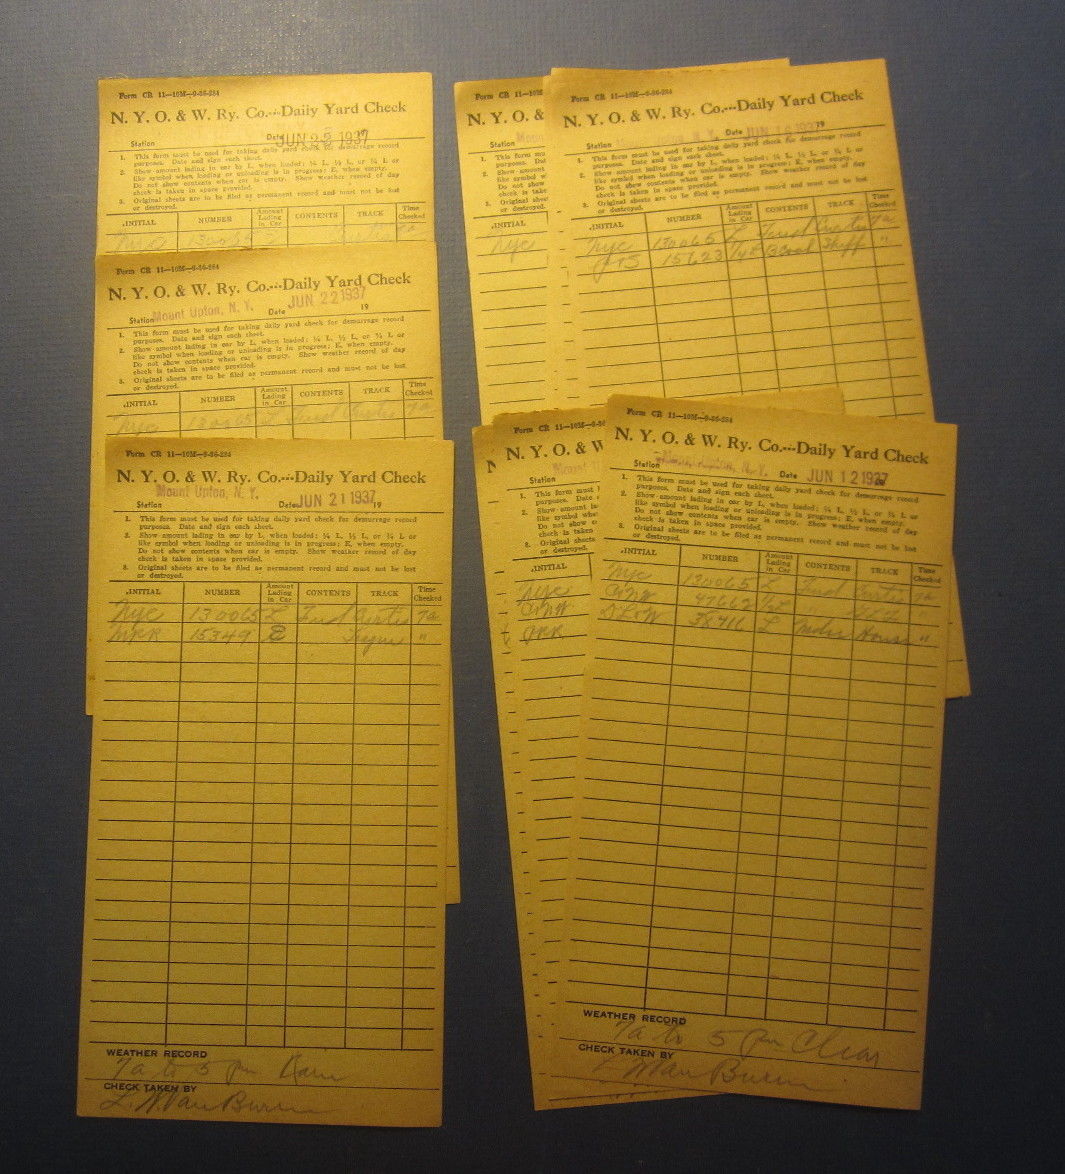 Form CR 11—10M—9-36-284
N. Y. O. & W. Ry. Co.---Daily Yard Check
Station Date JUN 25 1937 19
1. This form must be used for taking daily yard check for demurrage record
purposes. Date and sign each sheet.
2. Show amount lading in car by L, when loaded; ¼ L, ½ L, or ¾ L or
like symbol when loading or unloading is in progress; E, when empty.
Do not show contents when car is empty. Show weather record of day
check is taken in space provided.
3. Original sheets are to be filed as permanent record and must not be lost
or destroyed.
INITIAL NUMBER Amount Lading in Car CONTENTS TRACK Time Checked
NYC 130065 L 7a
Form CR 11—10M—9-36-284
N. Y. O. & W. Ry. Co.---Daily Yard Check
Station Mount Upton, N. Y. Date JUN 22 1937 19
1. This form must be used for taking daily yard check for demurrage record
purposes. Date and sign each sheet.
2. Show amount lading in car by L, when loaded; ¼ L, ½ L, or ¾ L or
like symbol when loading or unloading is in progress; E, when empty.
Do not show contents when car is empty. Show weather record of day
check is taken in space provided.
3. Original sheets are to be filed as permanent record and must not be lost
or destroyed.
INITIAL NUMBER Amount Lading in Car CONTENTS TRACK Time Checked
NYC 130065 L 7a
Form CR 11—10M—9-36-284
N. Y. O. & W. Ry. Co.---Daily Yard Check
Mount Upton, N. Y.
Station Date JUN 21 1937 19
1. This form must be used for taking daily yard check for demurrage record
purposes. Date and sign each sheet.
2. Show amount lading in car by L, when loaded; ¼ L, ½ L, or ¾ L or
like symbol when loading or unloading is in progress; E, when empty.
Do not show contents when car is empty. Show weather record of day
check is taken in space provided.
3. Original sheets are to be filed as permanent record and must not be lost
or destroyed.
INITIAL NUMBER Amount Lading in Car CONTENTS TRACK Time Checked
NYC 130065 L 7a
15349 E "
WEATHER RECORD
7a to 5 pm
CHECK TAKEN BY
L. W. Van Buren
Form CR 11—10M
N. Y. O. & W
Station Moun
1. This form mu
purposes. Dat
2. Show amount
like symbol w
Do not show
check is take
3. Original sheet
or destroyed.
INITIAL
NYC
Form CR 11—10M—9-36-284
N. Y. O. & W. Ry. Co.---Daily Yard Check
Station N. Y. Date JUN 16 1937 19
1. This form must be used for taking daily yard check for demurrage record
purposes. Date and sign each sheet.
2. Show amount lading in car by L, when loaded; ¼ L, ½ L, or ¾ L or
like symbol when loading or unloading is in progress; E, when empty.
Do not show contents when car is empty. Show weather record of day
check is taken in space provided.
3. Original sheets are to be filed as permanent record and must not be lost
or destroyed.
INITIAL NUMBER Amount Lading in Car CONTENTS TRACK Time Checked
NYC 130065 L 7a
15623 "
Form CR 11—10M—9-36
N. Y. O. & W
Mount U
Station
1. This form must
purposes. Date
2. Show amount la
like symbol whe
Do not show co
check is taken
3. Original sheets
or destroyed.
INITIAL
NYC
Form CR 11—10M—9-36-284
N. Y. O. & W. Ry. Co.---Daily Yard Check
Station Mount Upton, N. Y. Date JUN 12 1937
1. This form must be used for taking daily yard check for demurrage record
purposes. Date and sign each sheet.
2. Show amount lading in car by L, when loaded; ¼ L, ½ L, or ¾ L or
like symbol when loading or unloading is in progress; E, when empty.
Do not show contents when car is empty. Show weather record of day
check is taken in space provided.
3. Original sheets are to be filed as permanent record and must not be lost
or destroyed.
INITIAL NUMBER Amount Lading in Car CONTENTS TRACK Time Checked
NYC 130065 L 7a
DL&W L House "
WEATHER RECORD
7a to 5 pm Clear
CHECK TAKEN BY
L W Van Buren